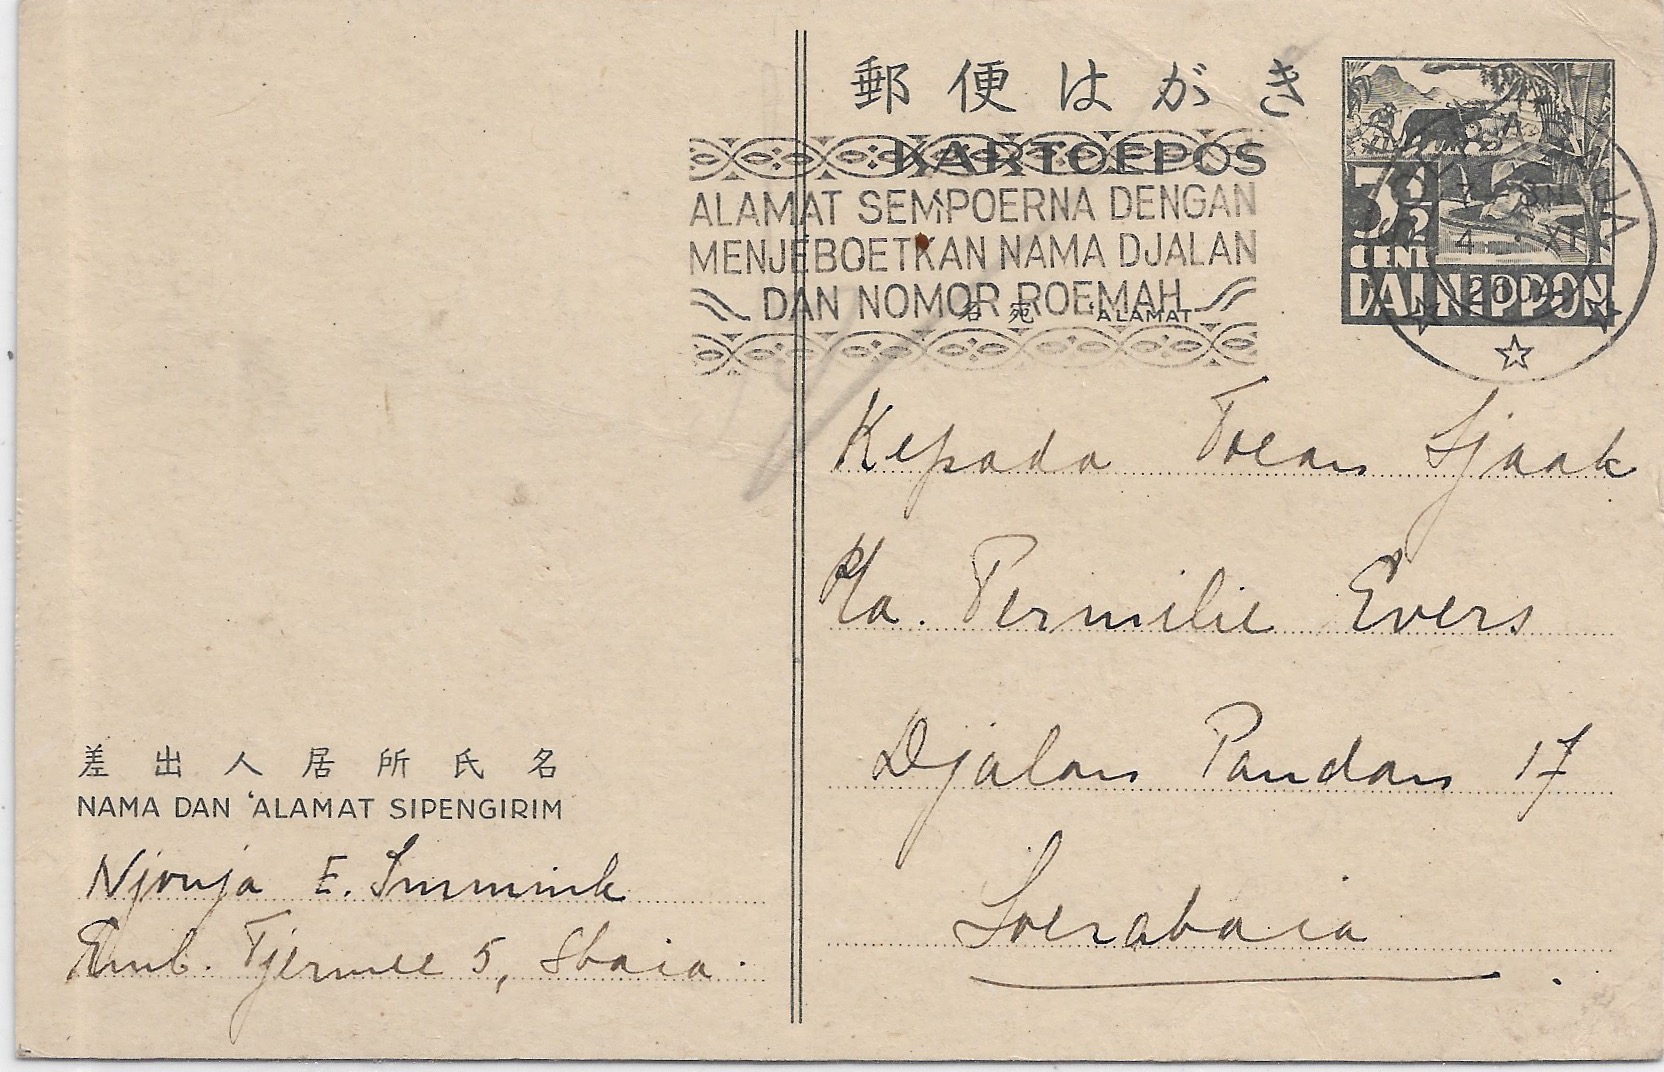 郵便はがき
KARTOEPOS
ALAMAT SEMPOERNA DENGAN
MENJEBOETKAN NAMA DJALAN
DAN NOMOR ROEMAH
名宛 ALAMAT
3½
CENT
DAI NIPPON
Kepada Toean Sjaak
p/a. Permilie Evers
Djalan Pandan 17
Soerabaia
差出人居所氏名
NAMA DAN 'ALAMAT SIPENGIRIM
Njonja E. Immink
Emb. Tjermee 5, Sbaia.